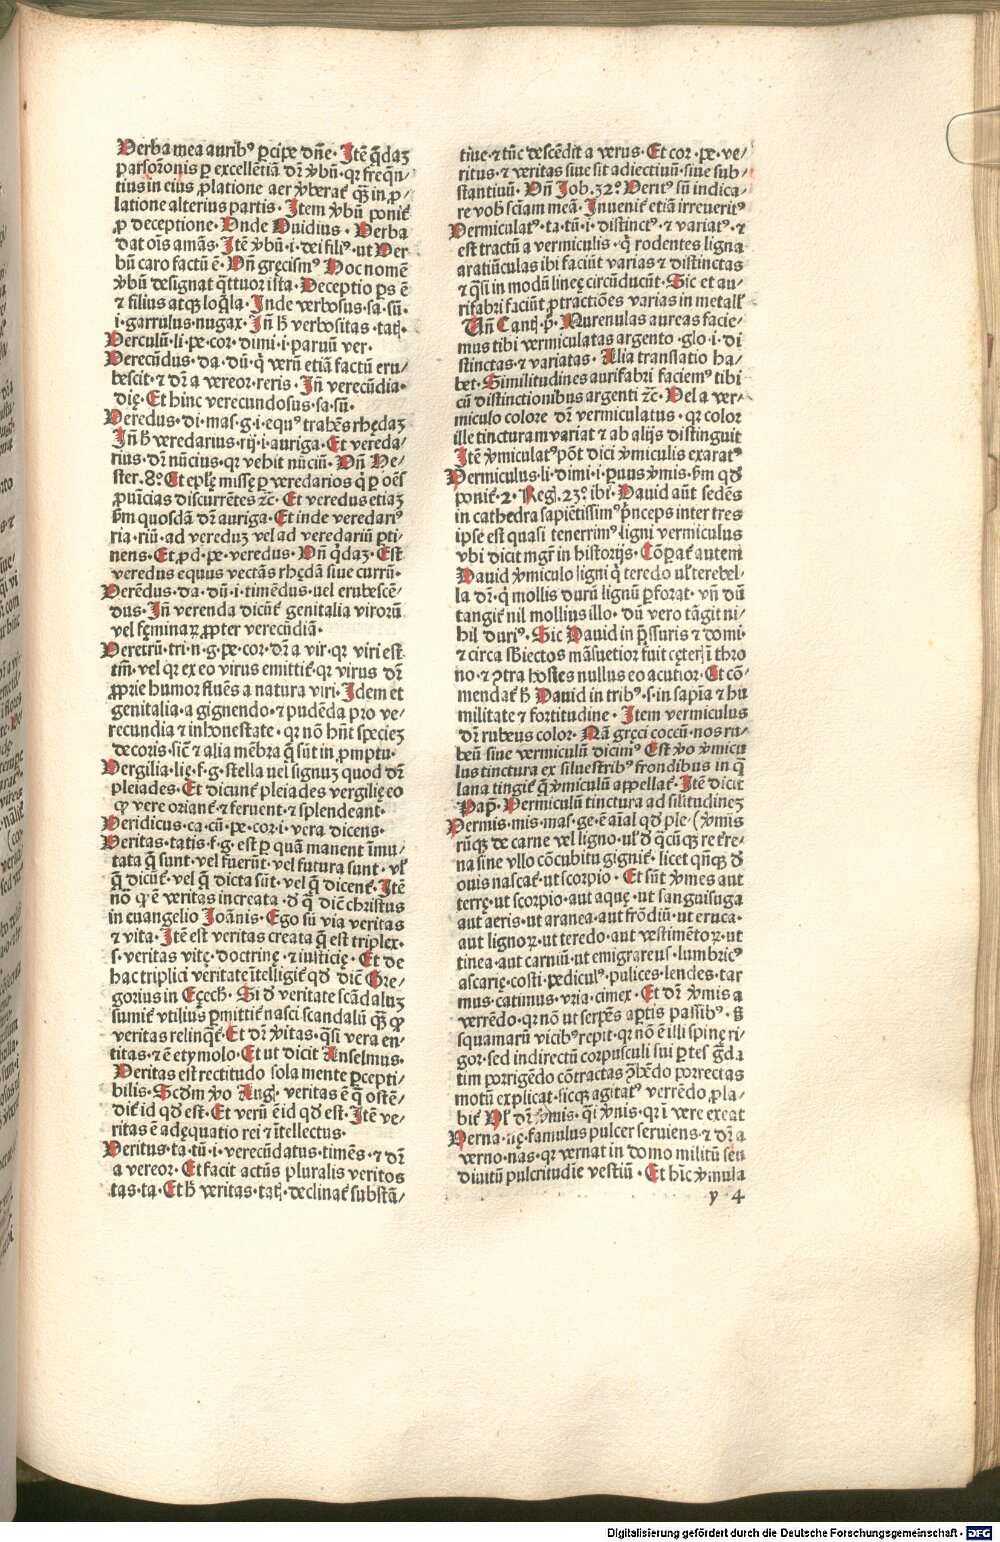 Verba mea auribꝰ ꝑcipe dñe· Itē q̄daꝫ
parsoronis ꝑ excellētiā dr̄ ꝟbū· qꝛ freqn̄/
tius in eius ꝓlatione aer ꝟberat᷑ qꝫ in ꝓ/
latione alterius partis· Item ꝟbū ponit᷑
ꝓ deceptione· Unde Ouidius· Verba
dat oīs amās· Itē ꝟbū·i·dei filiꝰ·ut Ver
bū caro factū ē· Vn̄ gręcismꝰ Hoc nomē
ꝟbū designat q̄ttuor ista· Deceptio ps ē
⁊ filius atqꝫ loq̄la· Inde verbosus·sa·sū·
i·garrulus·nugax· In̄ h̄ verbositas·tatꝭ·
Verculū·li·pe·cor·dimi·i·paruū ver·
Verecūdus·da·dū·q̇ verū etiā factū eru/
bescit·⁊ dr̄ a vereor·reris· In̄ verecūdia·
dię· Et hinc verecundosus·sa·sū·
Veredus·di·mas·g·i·equꝰ trahēs rhędaꝫ
In̄ h̄ veredarius·rij·i·auriga· Et vereda/
rius·dr̄ nūcius·qꝛ vehit nūciū· Vn̄ He/
ster·8º· Et eplę missę ꝑ veredarios q̇ ꝑ oēs
ꝓuīcias discurrētes ⁊c· Et veredus etiaꝫ
ẜm quosdā dr̄ auriga· Et inde veredariꝰ
ria·riū·ad veredū vel ad veredariū ꝑti·
nens· Et ꝓd·pe·veredus· Vn̄ q̄daꝫ· Est
veredus equus vectās rhędā siue currū·
Verēdus·da·dū·i·timēdus·uel erubescē·
dus· In̄ verenda dicūt᷑ genitalia virorū
vel fęminaꝝ ꝓpter verecūdiā·
Veretrū·tri·n·g·pe·cor·dr̄ a vir·qꝛ viri est
tm̄·vel qꝛ ex eo virus emittit᷑·qꝛ virus dr̄
ꝓprie humor fluēs a natura viri· Idem et
genitalia·a gignendo·⁊ pudēda pro ve/
recundia ⁊ inhonestate·qꝛ nō hn̄t specieꝫ
decoris·sic̄ ⁊ alia mēbra q̄ sūt in ꝓmptu·
Vergilia·lię·f·g·stella uel signuꝫ quod dr̄
pleiades· Et dicunt᷑ pleiades vergilię eo
ꝙ vere oriant᷑·⁊ feruent·⁊ splendeant·
Veridicus·ca·cū·pe·cor·i·vera dicens·
Veritas·tatis·f·g·est ꝑ quā manent īmu/
tata q̄ sunt·vel fuerūt·vel futura sunt·vl̓
q̄ dicūt᷑·vel q̄ dicta sūt·vel q̄ dicent᷑· Itē
nō ꝙ ē veritas increata·ď q̄ dicīt christus
in euangelio Ioānis· Ego sū via veritas
⁊ vita· Itē est veritas creata q̄ est triplex·
s·veritas vitę·doctrinę·⁊ iusticię· Et de
hac triplici veritate ītelligit᷑ qď dicīt Gre/
gorius in Ezech· Si ď veritate scādaluꝫ
sumit᷑·vtiliꝰ ꝑmittit᷑ nasci scandalū qꝫ ꝙ
veritas relinq̄t᷑· Et dr̄ ꝟitas·qsi vera en/
titas·⁊ ē etymolo· Et ut dicit Anselmus·
Veritas est rectitudo sola mente ꝑcepti/
bilis· Scdm ꝟo Augꝭ veritas ē q̇ ostē/
dit᷑ id qď est· Et verū ē id qď est· Itē ve/
ritas ē adęquatio rei ⁊ ītellectus·
Veritus·ta·tū·i·verecūdatus·timēs·⁊ dr̄
a vereor· Et facit actūs pluralis veritos
tas·ta· Et h̄ veritas·tatꝭ·declinat᷑ substā/
tiue·⁊ tūc descēdit a verus· Et cor·pe·ve/
ritus·⁊ veritas siue sit adiectiuū·siue sub/
stantiuū· Vn̄ Iob·32º· Veritꝰ sū indica/
re vob sciam meā· Inuenit᷑ etiā irreueritꝰ
Vermiculatꝰ·ta·tū·i·distinctꝰ·⁊ variatꝰ·⁊
est tractū a vermiculis·q̇ rodentes ligna
aratiūculas ibi faciūt varias ⁊ distinctas
⁊ qsi in modū linęę circūducūt· Sic et au/
rifabri faciūt ꝓtractiōes varias in metallꝭ
Un̄ Cantꝭ·p̄· Murenulas aureas facie/
mus tibi vermiculatas argento·glo·i·di
stinctas·⁊ variatas· Alia translatio ha/
bet· Similitudines aurifabri faciem tibi
cū distinctionibus argenti ⁊c· Vel a ver/
miculo colore dr̄ vermiculatus·qꝛ color
ille tincturam variat ⁊ ab alijs distinguit
Itē ꝟmiculatꝰ pōt dici ꝟmiculis exaratꝰ
Vermiculus·li·dimi·i·ꝑuus ꝟmis·ẜm qď
ponit᷑·2·Regꝭ·23º·ibi· Dauid aūt sedēs
in cathedra sapiētissimꝰ p̄nceps inter tres
ipse est quasi tenerrimꝰ ligni vermiculus
vbi dicit mgr̄ in historijs· Cōꝑat᷑ autem
Dauid ꝟmiculo ligni q̇ teredo ul̓ terebel/
la dr̄·q̇ mollis durū lignū ꝑforat·vn̄ dū
tangit᷑ nil mollius illo·dū vero tāgit ni/
hil duriꝰ· Sic Dauid in p̄ssuris ⁊ domi·
⁊ circa sbiectos māsuetior fuit cęterꝭ ī thro
no·⁊ ꝯtra hostes nullus eo acutior· Et cō/
mendat᷑ h̄ Dauid in tribꝰ·s·in sapīa ⁊ hu
militate ⁊ fortitudine· Item vermiculus
dr̄ rubeus color· Nā gręci coccū·nos ru/
beū siue vermiculū dicimꝰ Est ꝟo ꝟmicu
lus tinctura ex siluestribꝰ frondibus in q̄
lana tingit᷑ q̄ ꝟmiculū appellat᷑· Itē dicit
Papꝭ· Vermiculū tinctura ad silitudineꝫ
Vermis·mis·mas·ge·ē aīal qď ple·(ꝟmis
rūqꝫ de carne vel ligno·ul̓ ď q̄cūqꝫ re t̓re/
na sine vllo cōcubitu gignit᷑·licet qn̄qꝫ ď
ouis nascat᷑·ut scorpio· Et sūt ꝟmes aut
terrę·ut scorpio·aut aquę·ut sanguisuga
aut aeris·ut aranea·aut frōdiū·ut eruca·
aut lignoꝝ·ut teredo·aut vestimētoꝝ·ut
tinea·aut carniū·ut emigraneus·lumbricꝰ
ascarię·costi·pediculꝰ·pulices·lendes·tar
mus·catimus·vria·cimex· Et dr̄ ꝟmis a
verrēdo·qꝛ nō ut serpēs aꝑtis passibꝰ·ẜ
squamarū vicibꝰ repit·qꝛ nō ē illi spinę ri/
gor·sed indirectū corpusculi sui ꝑtes gda
tim porrigēdo cōtractas ꝓhēdo porrectas
motū explicat·sicqꝫ agitatꝰ verrēdo ꝓla/
bit᷑ Vl̓ dr̄ ꝟmis·qsi ꝟnis·qꝛ ī vere exeat
Verna·nę·famulus pulcer seruiens·⁊ dr̄ a
verno·nas·qꝛ vernat in domo militū seu
diuitū pulcritudie vestiū· Et hīc ꝟnula
y 4
Digitalisierung gefördert durch die Deutsche Forschungsgemeinschaft - DFG